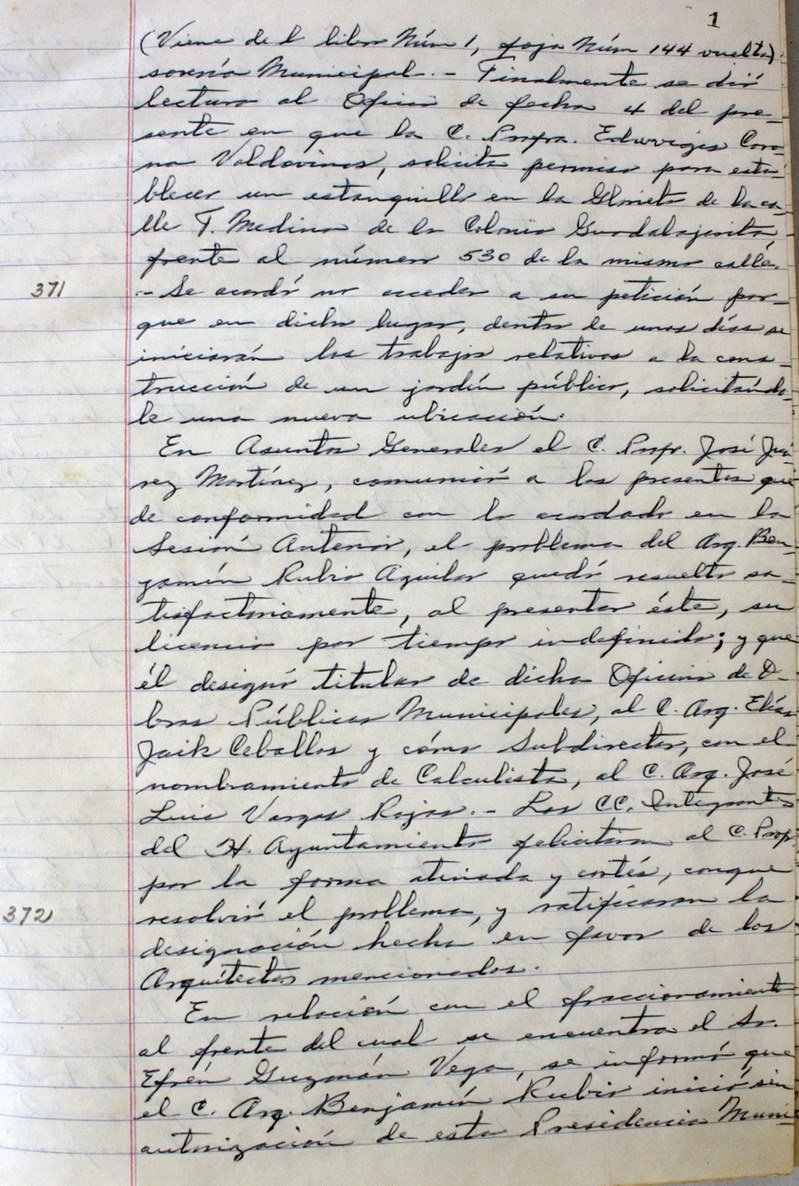 1
(Viene del libro Núm 1, foja Núm 144 vuelta)
sorería Municipal.- Finalmente se dió
lectura al Oficio de fecha 4 del pre-
sente en que la C. Profra. Eduviges Coro-
na Valdovinos, solicita permiso para esta-
blecer un estanquillo en la Glorieta de la ca-
lle T. Medina de la Colonia Guadalajarita,
frente al número 530 de la misma calle.
371
.- Se acordó no acceder a su petición por-
que en dicho lugar, dentro de unos días se
iniciarán los trabajos relativos a la cons-
trucción de un jardín público, solicitándo-
le una nueva ubicación.
En Asuntos Generales el C. Profr. José Juá-
rez Martínez, comunicó a los presentes que
de conformidad con lo acordado en la
Sesión Anterior, el problema del Arq. Ben-
jamín Rubio Aguilar quedó resuelto sa-
tisfactoriamente, al presentar éste, su
licencia por tiempo indefinido; y que
él designó titular de dicha Oficina de O-
bras Públicas Municipales, al C. Arq. Elías
Jaik Ceballos y cómo Subdirector, con el
nombramiento de Calculista, al C. Arq. José
Luis Vargas Rojas.- Los CC. Integrantes
del H. Ayuntamiento felicitaron al C. Prof.
por la forma atinada y cortés, conque
372
resolvió el problema, y ratificaron la
designación hecha en favor de los
Arquitectos mencionados.
En relación con el fraccionamiento
al frente del cual se encuentra el Sr.
Efrén Guzmán Vega, se informó que
el C. Arq. Benjamín Rubio inició sin
autorización de esta Presidencia Muni-